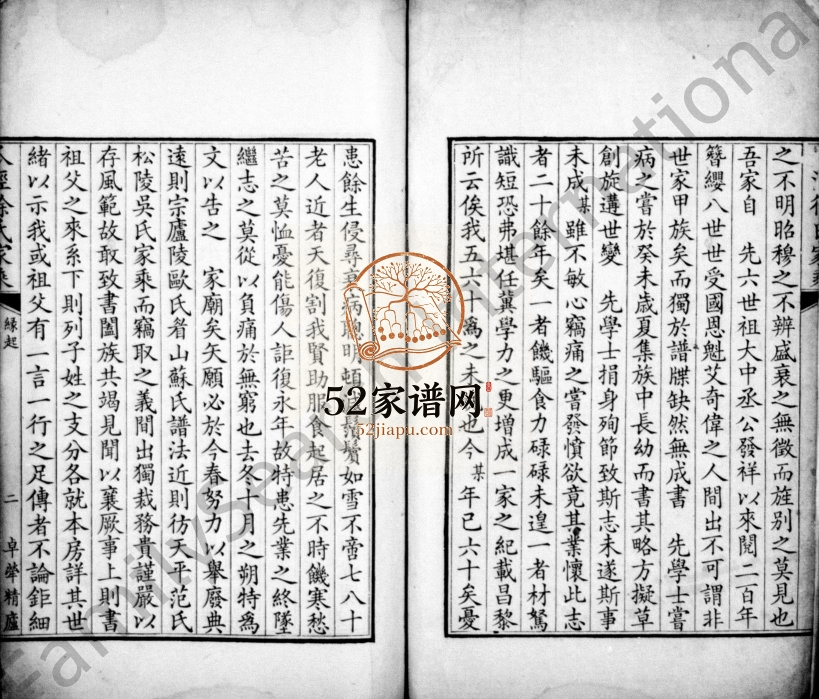 之不明昭穆之不辨盛衰之無徵而旌别之莫見也
吾家自　先六世祖大中丞公發祥以來閱二百年
簪纓八世世受國恩魁艾奇偉之人間出不可謂非
世家甲族矣而獨於譜牒缺然無成書　先學士嘗
病之嘗於癸未歲夏集族中長幼而書其略方擬草
創旋遘世變　先學士捐身殉節致斯志未遂斯事
未成某雖不敏心竊痛之嘗發憤欲竟其業懷此志
者二十餘年矣一者饑驅食力碌碌未遑一者材駑
識短恐弗堪任蘉學力之更增成一家之紀載昌黎
所云俟我五六十爲之未也今某年已六十矣憂
患餘生侵尋衰病聰明頓鬢如雪不啻七八十
老人近者天復割我賢助服食起居之不時饑寒愁
苦之莫恤憂能傷人詎復永年故特患先業之終墜
繼志之莫從以負痛於無窮也去冬十月之朔特爲
文以告之　家廟矣天願必於今春努力以舉廢典
遠則宗廬陵歐氏眉山蘇氏譜法近則彷天平范氏
松陵吳氏家乘而竊取之義間出獨裁務貴謹嚴以
存風範故敢致書闔族共竭見聞以襄厥事上則書
祖父之來系下則列子姓之支分各就本房詳其世
緒以示我或祖父有一言一行之足傳者不論鉅細
徐氏家乘
緣起
二
卓犖精廬
52家谱网
52jiapu.com
FamilySearch International